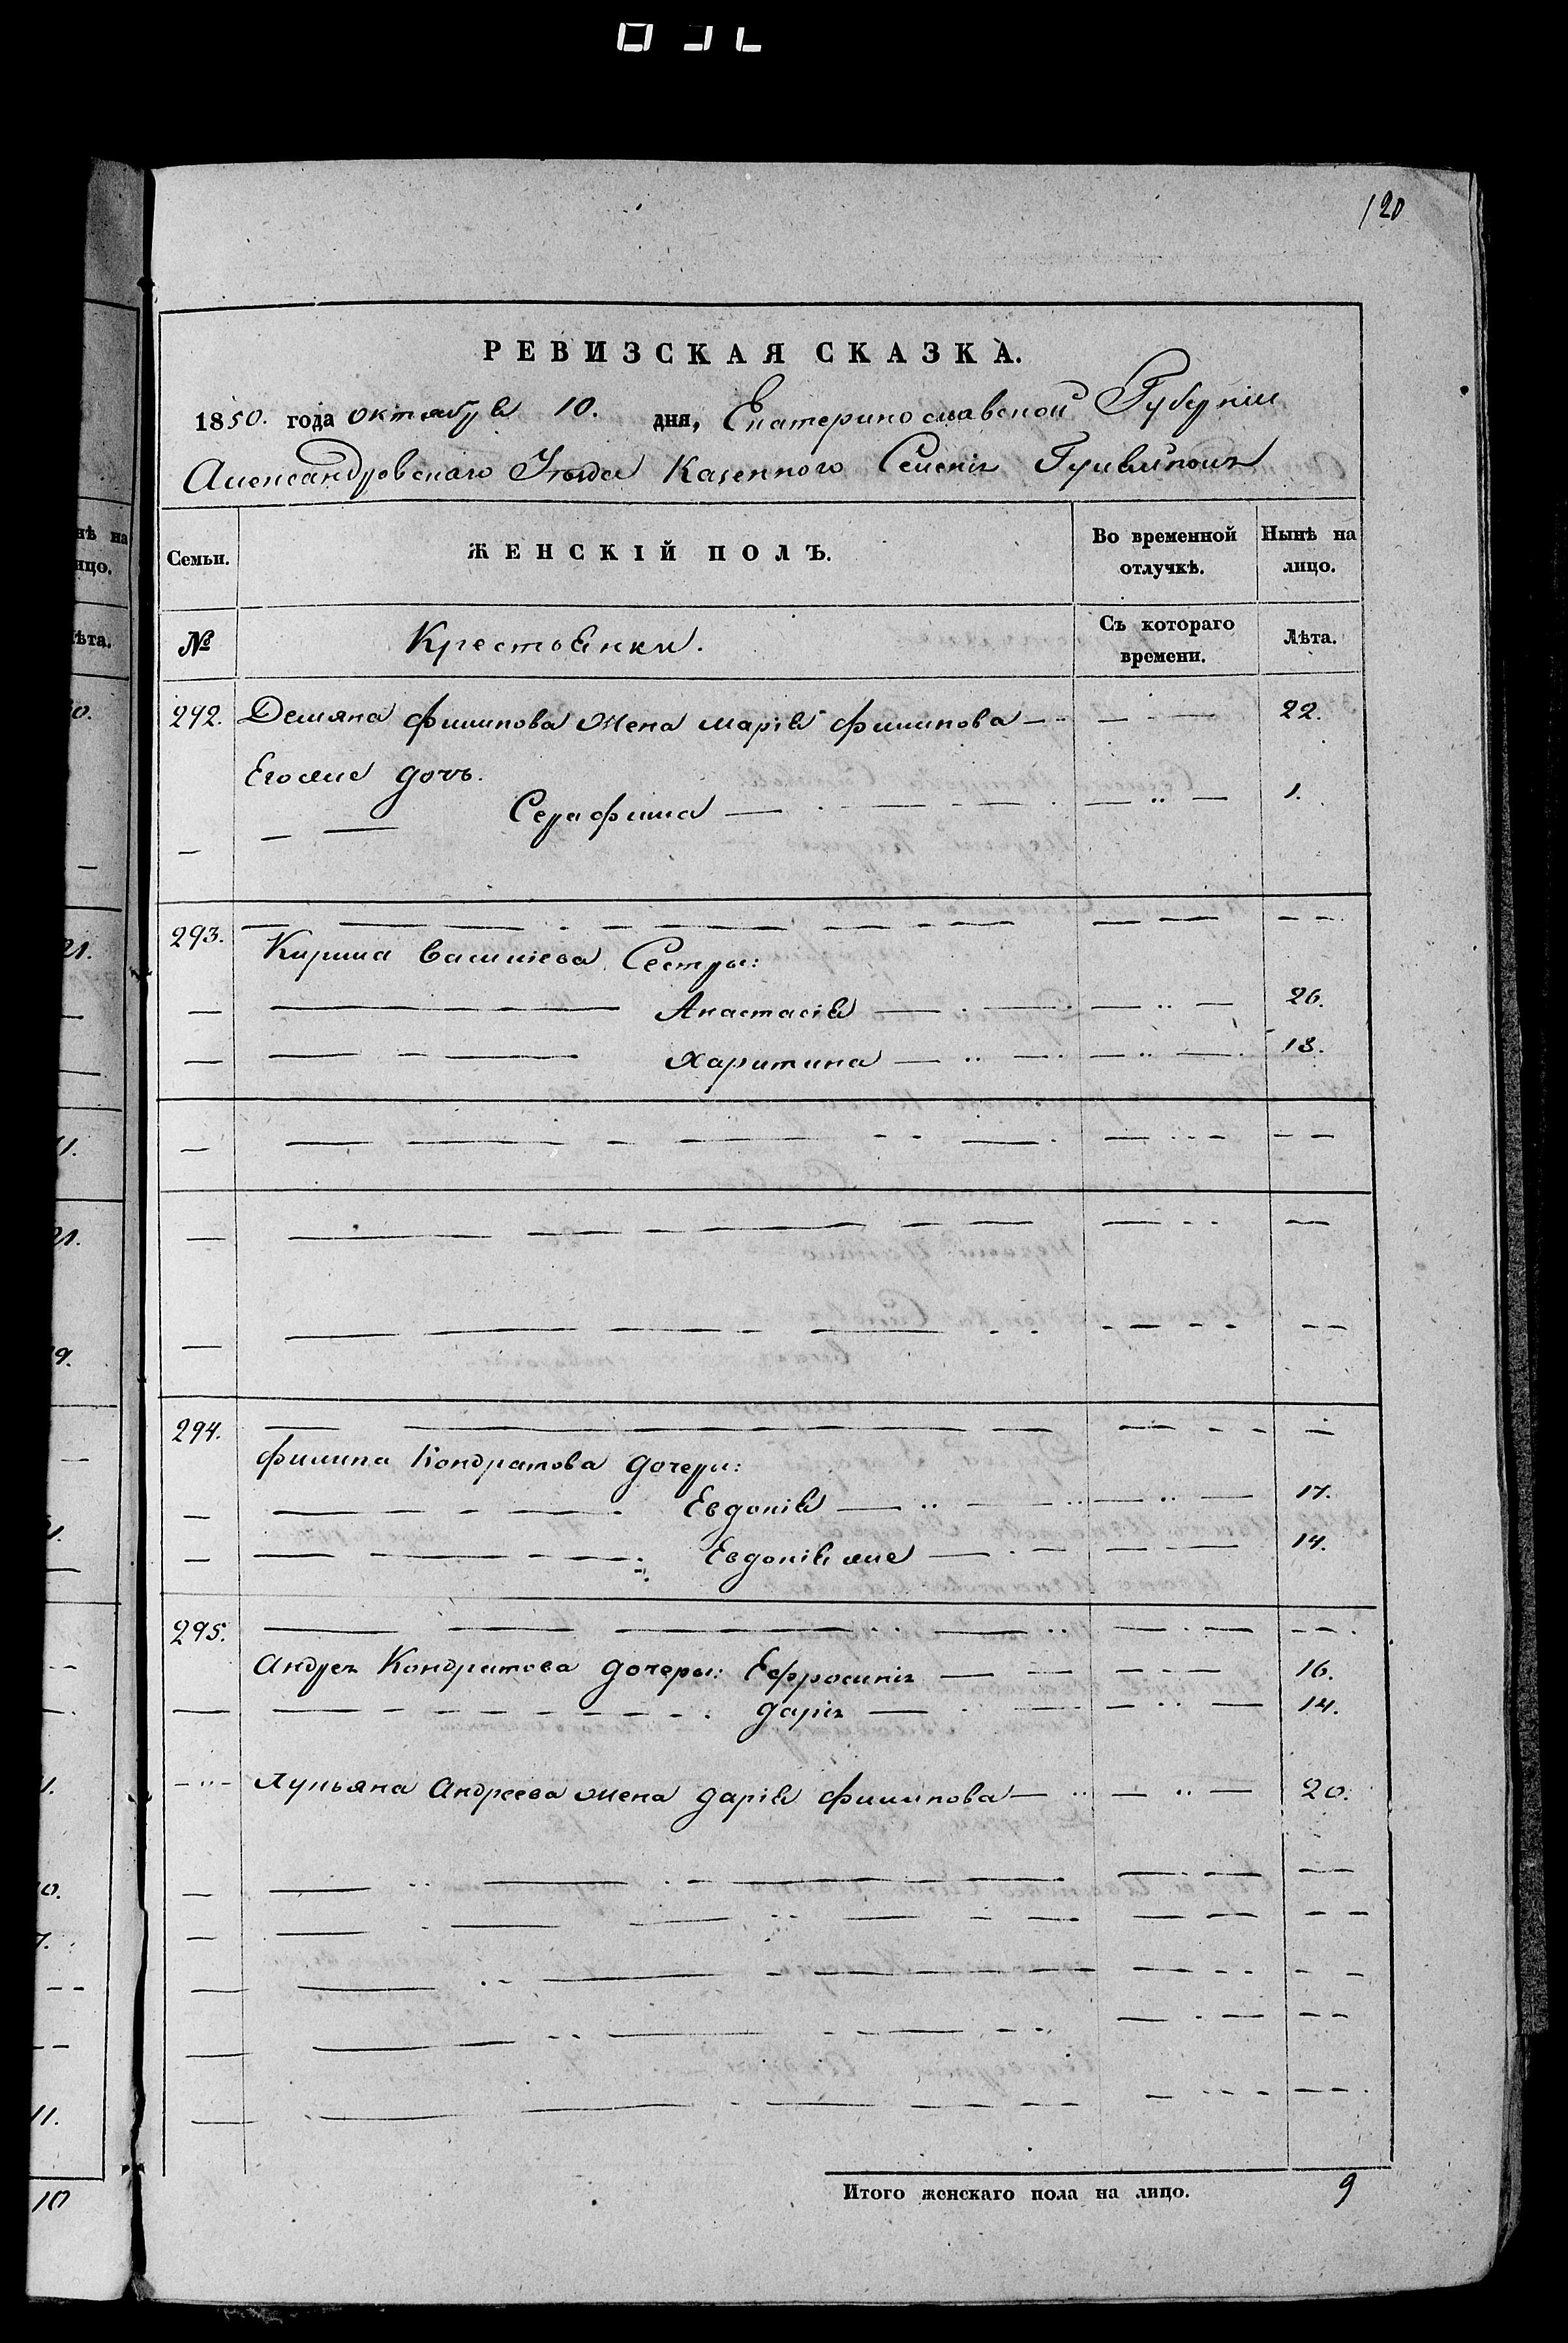 120
РЕВИЗСКАЯ СКАЗКА.
1850. года октября 10. дня, Екатеринославской Губерніи
Александровскаго Уѣзда Казенного Селенія Гуляйполя
Семьи. ЖЕНСКІЙ ПОЛЪ. Во временной отлучкѣ. Нынѣ на лицо.
№ Крестьянки. Съ котораго времени. Лѣта.
292. Демяна Филипова жена марія Филипова 22.
Его же дочь.
Серафима 1.
293.
Кирила Василіева Сестры:
Анастасія 26.
Харитина 18.
294.
Филипа Кондратова дочери:
Евдокія 17.
Евдокія же 14.
295.
Андрея Кондратова дочери: Ефросинія 16.
дарія 14.
Лукьяна Андреева жена дарія Филипова 20.
Итого женскаго пола на лицо. 9
нѣ на
ицо.
ѣта.
0.
21.
21.
9.
10.
7.
11.
10